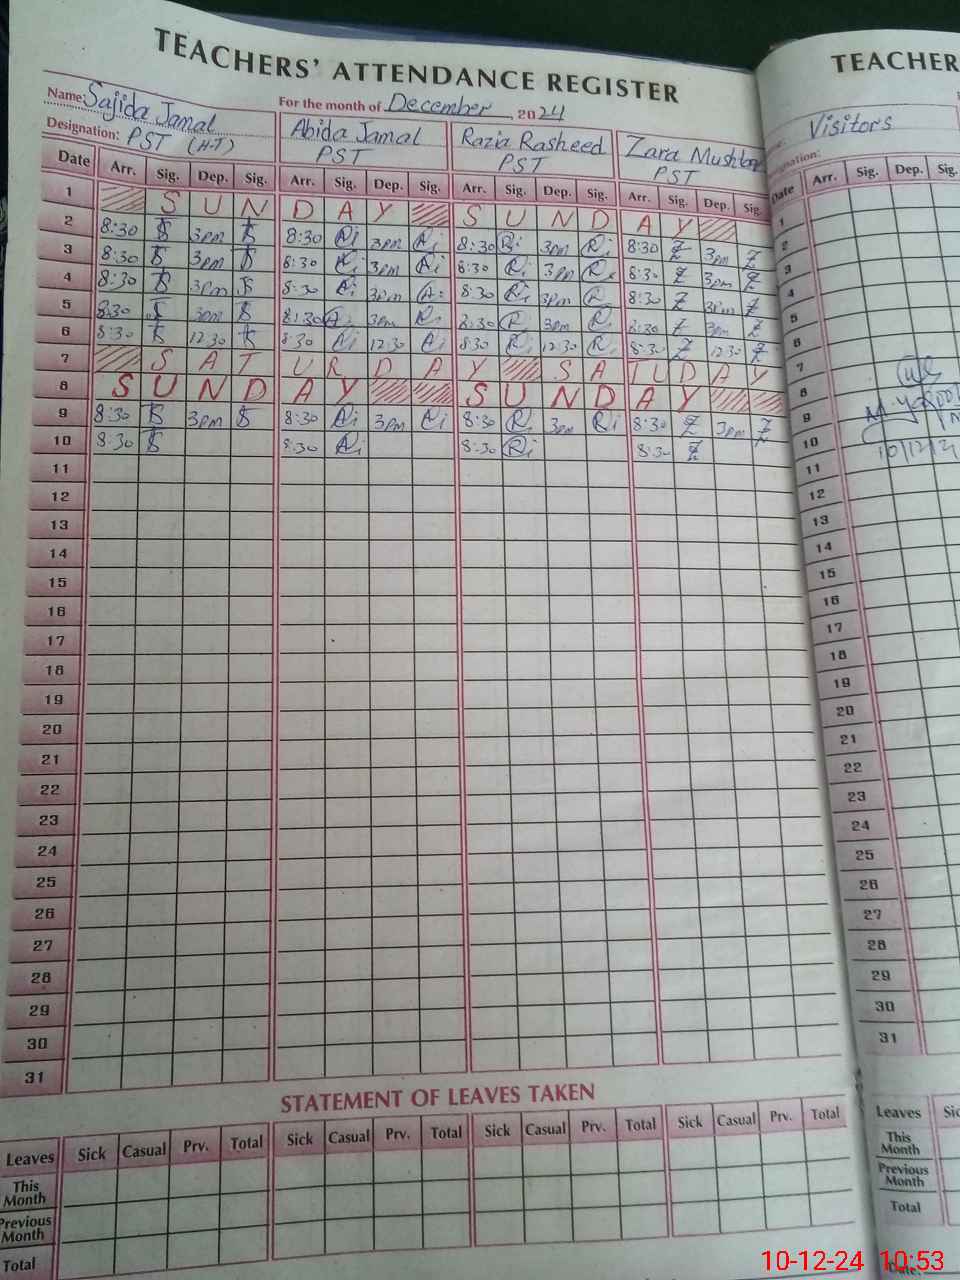 TEACHERS' ATTENDANCE REGISTER
TEACHER
Name: Sajida Jamal For the month of December, 2024
Designation: PST (H.T) Abida Jamal PST Razia Rasheed PST Zara Mushtaq PST
Visitors
Date Arr. Sig. Dep. Sig. Arr. Sig. Dep. Sig. Arr. Sig. Dep. Sig. Arr. Sig. Dep. Sig.
Date Arr. Sig. Dep. Sig.
1 S U N D A Y S U N D A Y
2 8:30 3pm 8:30 3pm 8:30 3pm 8:30 3pm
3 8:30 3pm 8:30 3pm 8:30 3pm 8:30 3pm
4 8:30 3pm 8:30 3pm 8:30 3pm 8:30 3pm
5 8:30 3pm 8:30 3pm 8:30 3pm 8:30 3pm
6 8:30 12:30 8:30 12:30 8:30 12:30 8:30 12:30
7 S A T U R D A Y S A T U D A Y
8 S U N D A Y S U N D A Y
9 8:30 3pm 8:30 3pm 8:30 3pm 8:30 3pm
10 8:30 8:30 8:30 8:30
11
12
13
14
15
16
17
18
19
20
21
22
23
24
25
26
27
28
29
30
31
1
2
3
4
5
6
7
8
9
10
11
12
13
14
15
16
17
18
19
20
21
22
23
24
25
26
27
28
29
30
31
STATEMENT OF LEAVES TAKEN
Leaves Sick Casual Prv. Total Sick Casual Prv. Total Sick Casual Prv. Total Sick Casual Prv. Total
This Month
Previous Month
Total
Leaves
This Month
Previous Month
Total
Date:
10-12-24 10:53